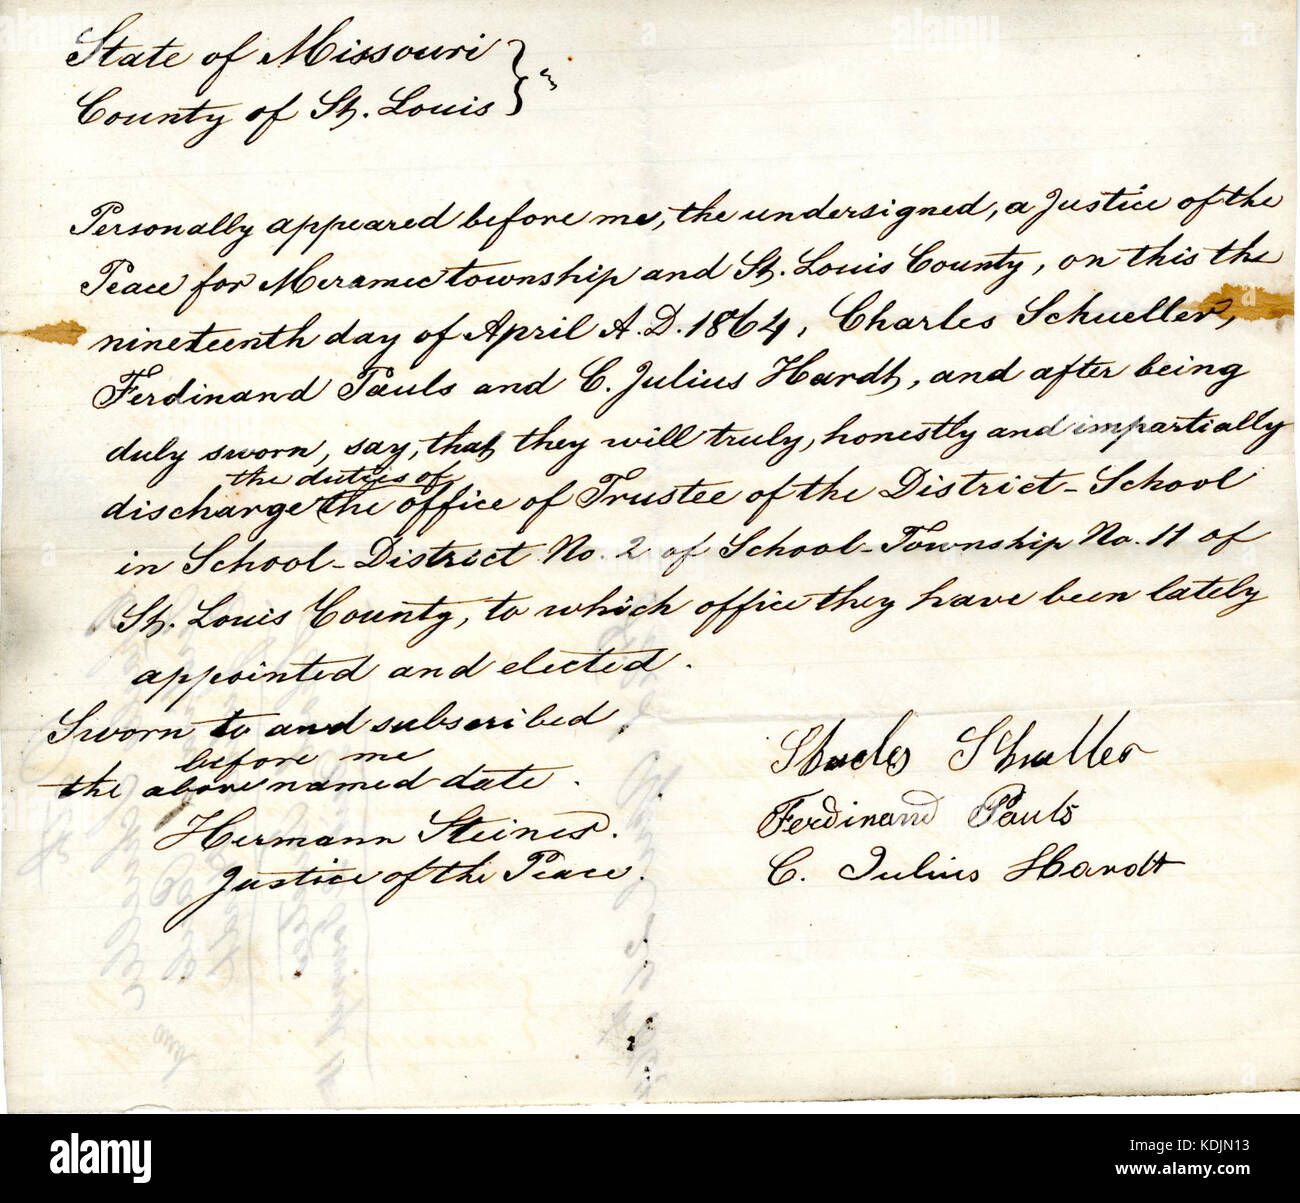 State of Missouri
County of St. Louis } ss
Personally appeared before me, the undersigned, a Justice of the
Peace for Meramec township and St. Louis County, on this the
nineteenth day of April A. D. 1864, Charles Schueller,
Ferdinand Pauls and C. Julius Hardt, and after being
duly sworn, say, that they will truly, honestly and impartially
the duties of
discharge the office of Trustee of the District-School
in School-District No. 2 of School-Township No. 11 of
St. Louis County, to which office they have been lately
appointed and elected.
Sworn to and subscribed
before me
the above named date.
Hermann Steines.
Justice of the Peace.
Charles Schuller
Ferdinand Pauls
C. Julius Hardt
alamy
Image ID: KDJN13
www.alamy.com